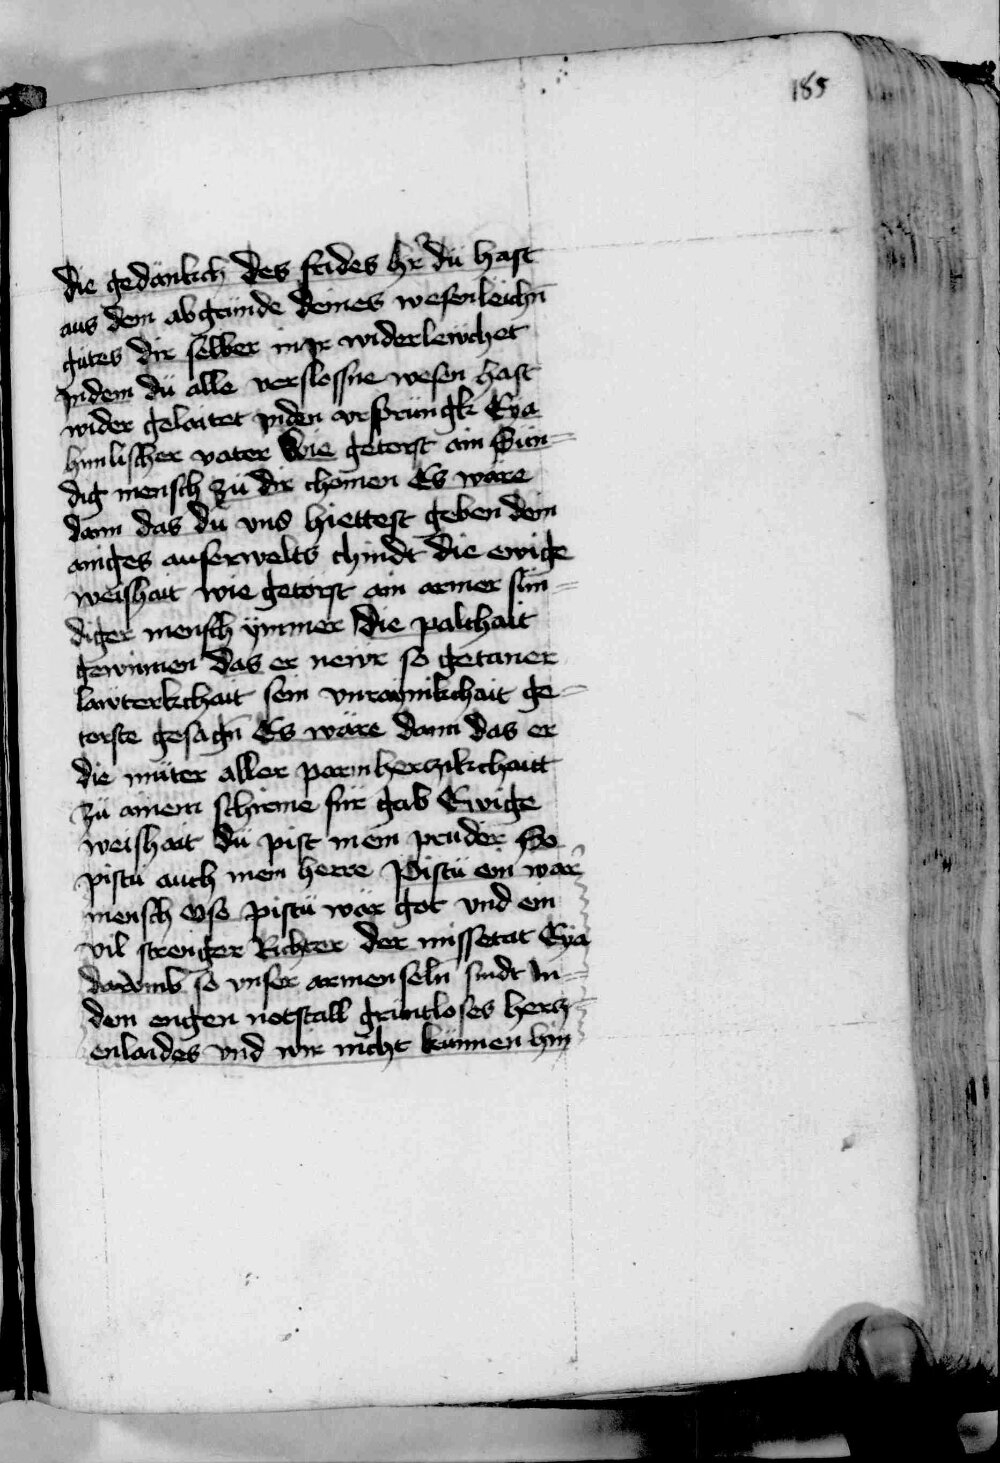 185
die gedänkch des frides hr̃ dü hast
aus dem abgründe deines wesenleichñ
gütes dir selber in ir widerlewchet
Indem dü alle verslossne wesen hast
wider gelaitet inden vrsprüngk Eya
himlischer vater Wie getorst ain Sün=
dig mensch zü dir chömen Es wäre
dann das dü vns hiettest geben dein
ainiges auserwelts chindt die ewige
weishait wie getörst ain armer sün=
diger mensch ymmer die palthait
gewinnen das er newr so getaner
lawterkchait sein vnrainikchait ge=
torste gesagñ Es wäre dann das er
die müter aller parmherczikchaitt
zü ainem schirme für gab Ewige
weishait dü pist mein prüder So
pistu auch mein herre Pistü ein war
mensch Also pistü war got vnd ein
vil strenger Richter der missetat Eya
darvmb so vnser armen seln̄ sindt In=
dem engen notstall grüntloses hercz=
enlaides vnd wir nicht künnen hin